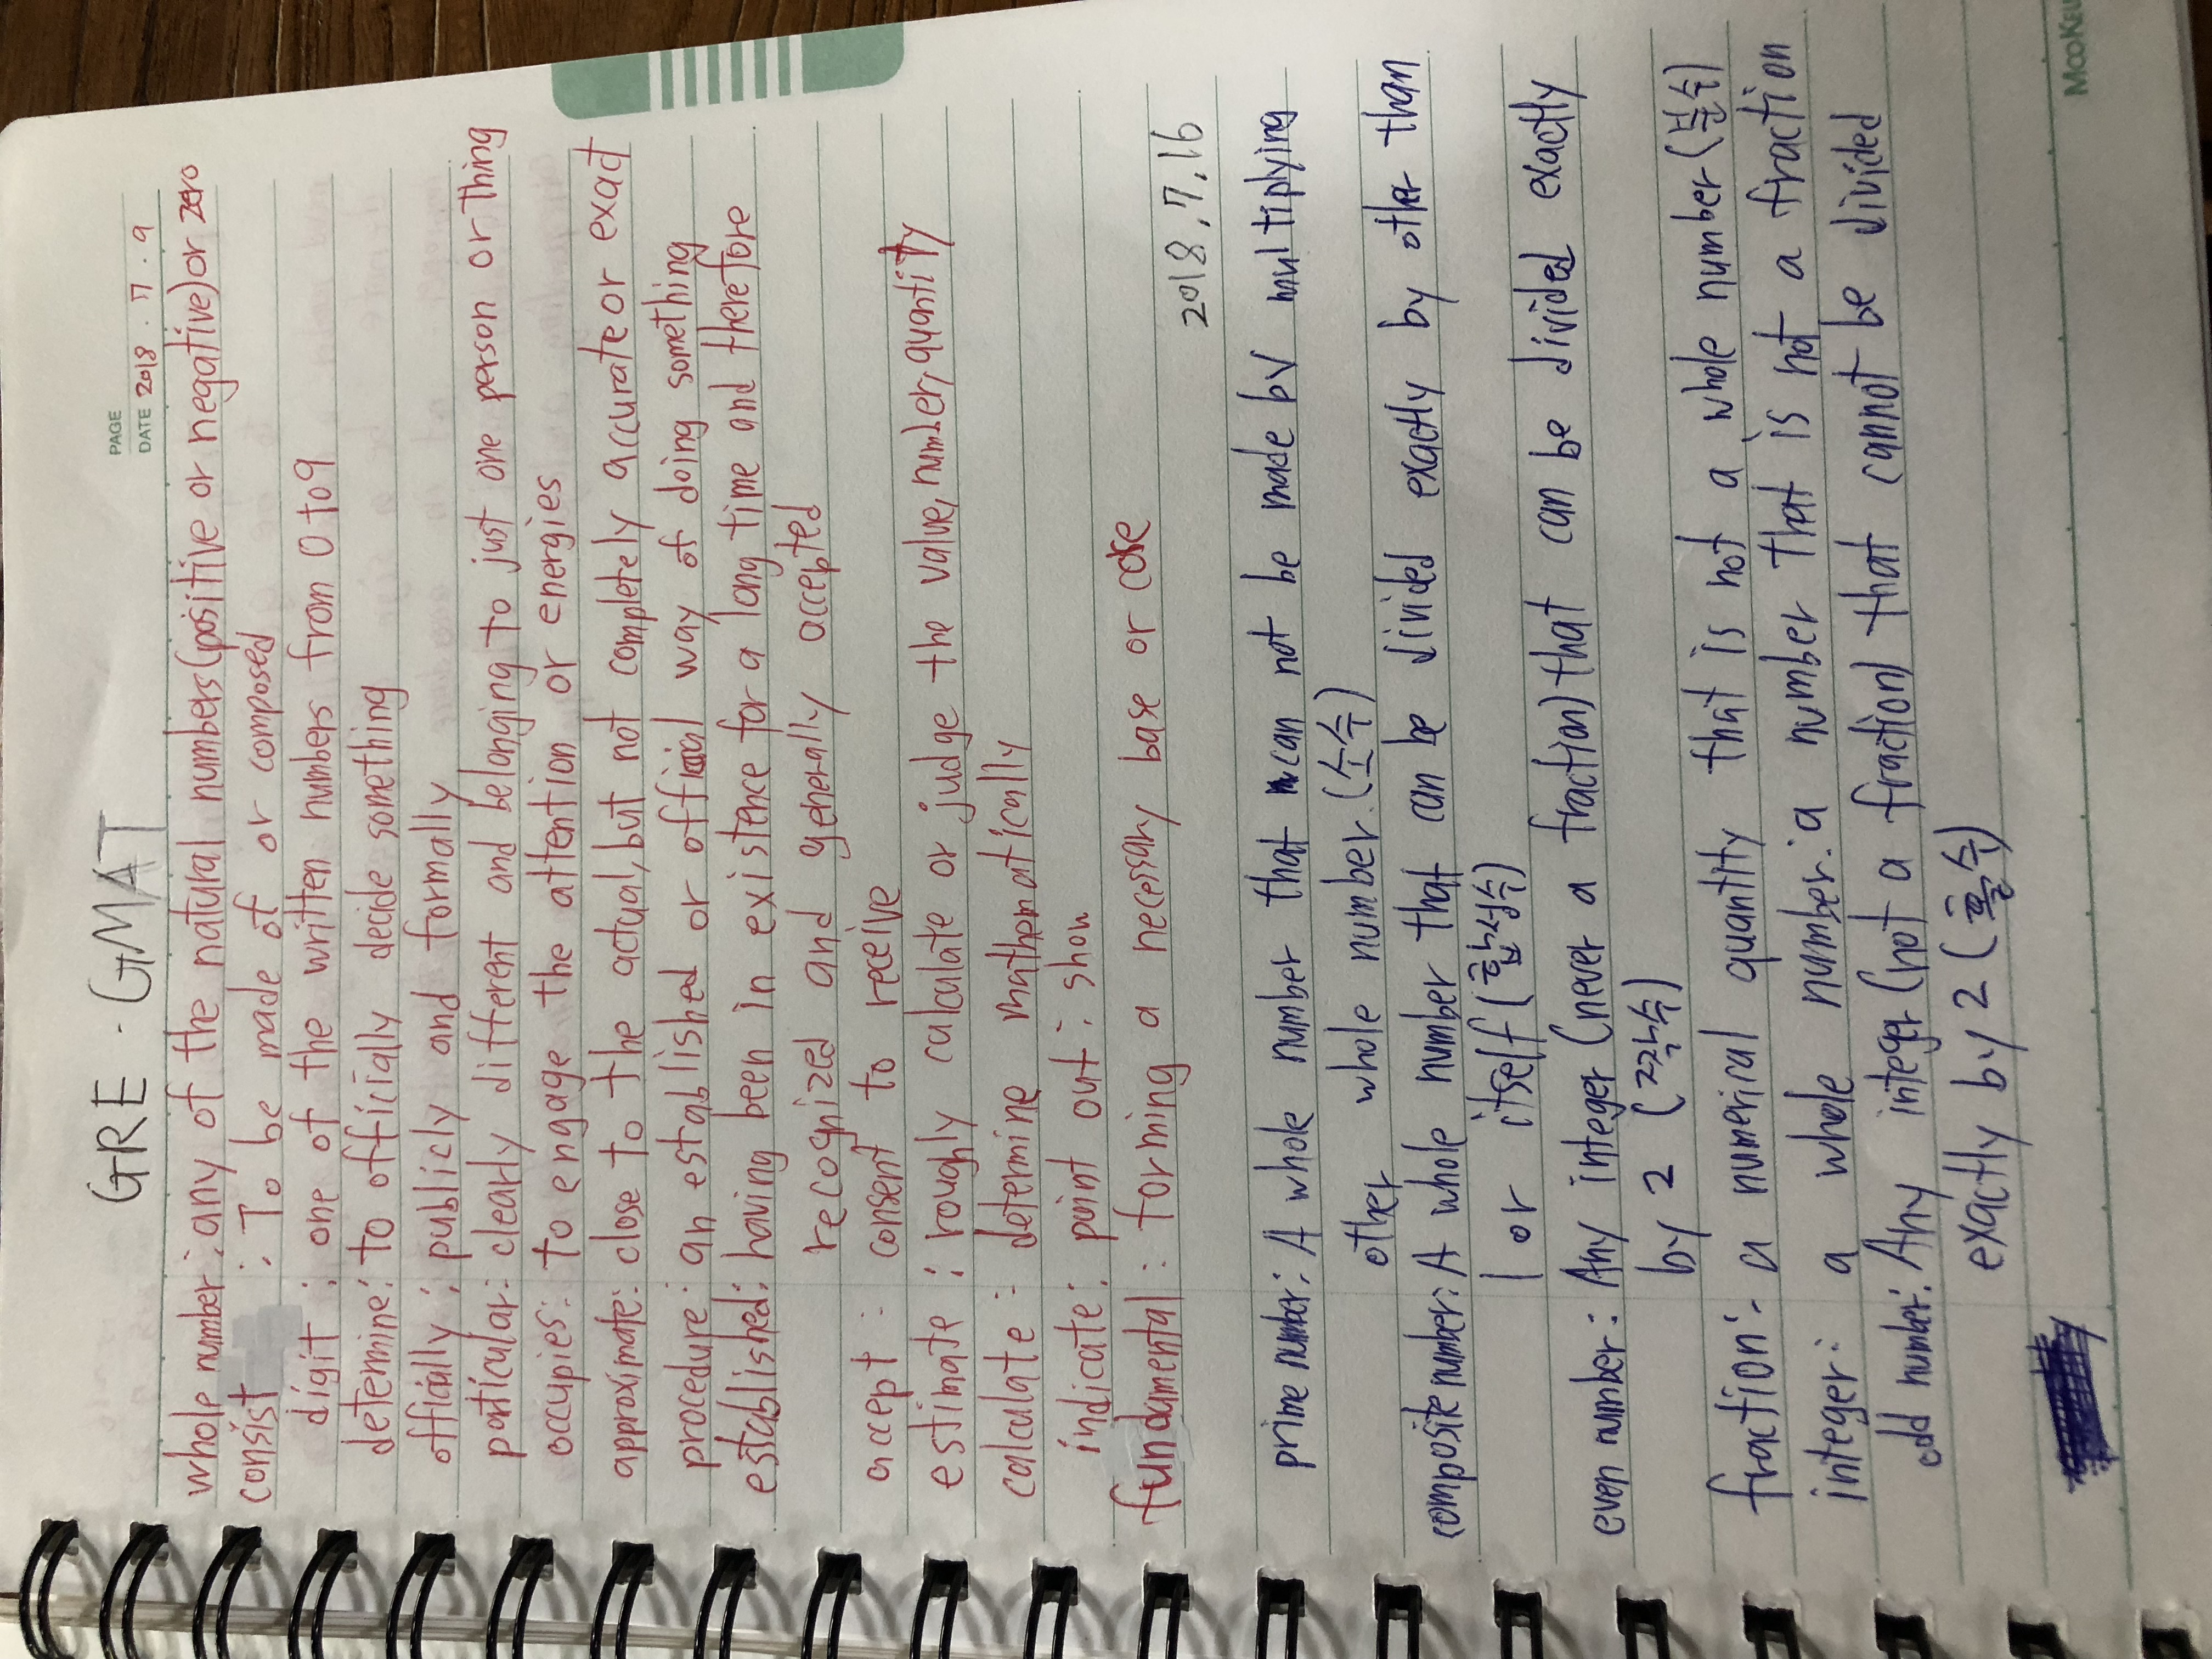 PAGE
DATE 2018 . 7 . 9
GRE . GMAT
whole number : any of the natural numbers (positive or negative) or zero
consist : To be made of or composed
digit : one of the written numbers from 0 to 9
determine : to officially decide something
officially : publicly and formally
particular : clearly different and belonging to just one person or thing
occupies : to engage the attention or energies
approximate : close to the actual, but not completely accurate or exact
procedure : an established or official way of doing something
established : having been in existence for a long time and therefore
recognized and generally accepted
accept : consent to receive
estimate : roughly calculate or judge the value, number, quantity
calculate : determine mathematically
indicate : point out : show
fundamental : forming a necessary base or core
2018, 7, 16
prime number : A whole number that can not be made by multiplying
other whole number. (소수)
composite number : A whole number that can be divided exactly by other than
1 or itself (합성수)
even number : Any integer (never a fraction) that can be divided exactly
by 2 (짝수)
fraction : a numerical quantity that is not a whole number (분수)
integer : a whole number : a number that is not a fraction
odd number : Any integer (not a fraction) that cannot be divided
exactly by 2 (홀수)